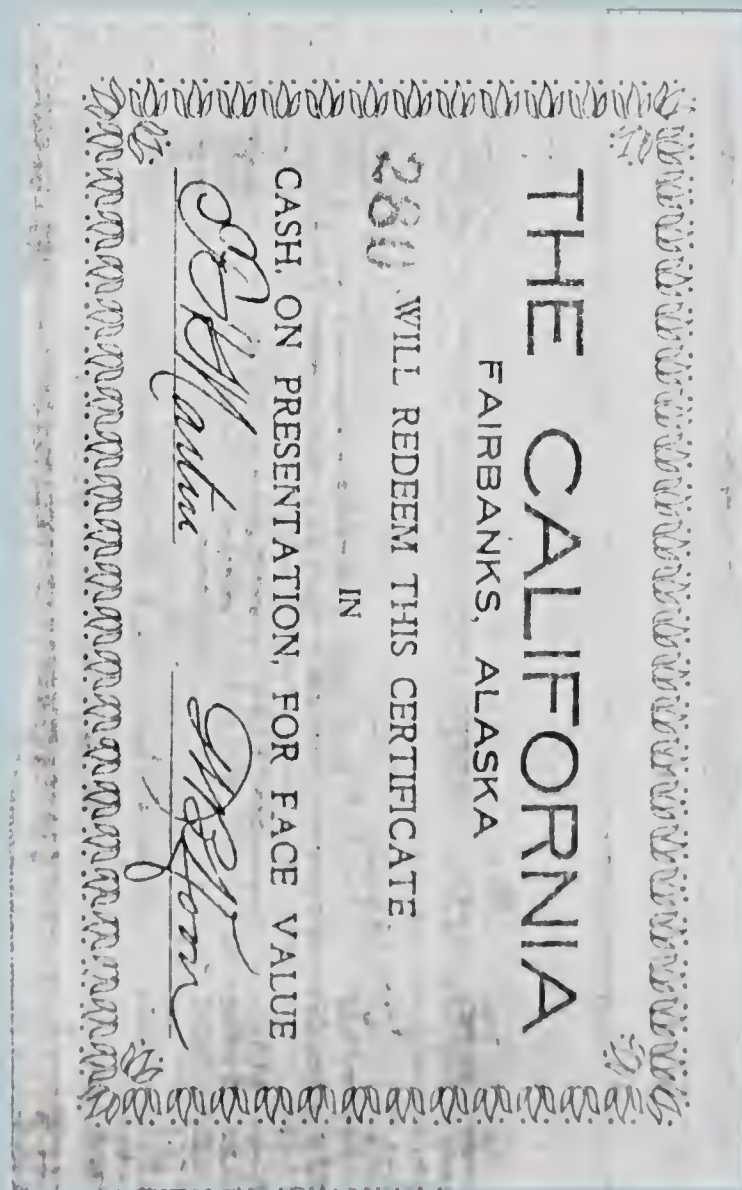 THE CALIFORNIA
FAIRBANKS, ALASKA
280 WILL REDEEM THIS CERTIFICATE
IN
CASH, ON PRESENTATION, FOR FACE VALUE
Martin